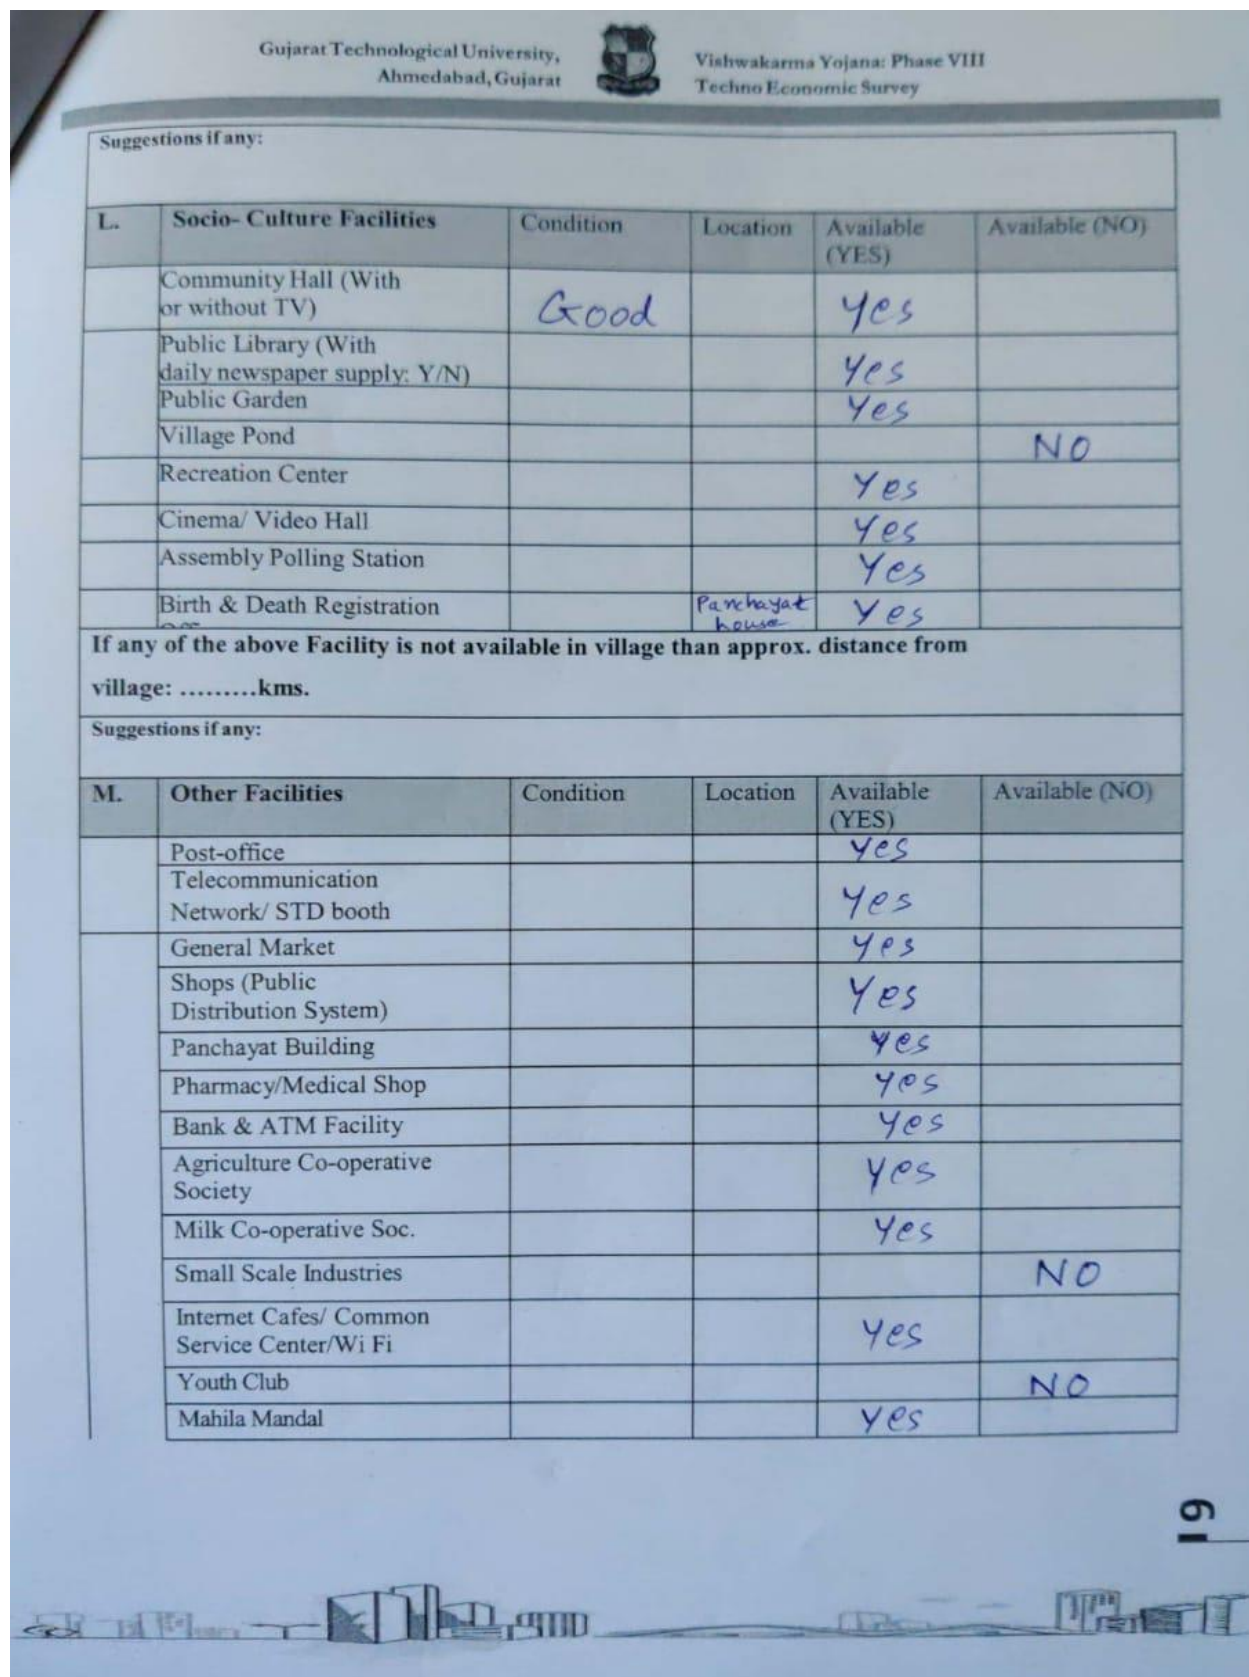 Gujarat Technological University,
Ahmedabad, Gujarat
Vishwakarma Yojana: Phase VIII
Techno Economic Survey
Suggestions if any:
L. Socio- Culture Facilities Condition Location Available (YES) Available (NO)
Community Hall (With
or without TV) Good Yes
Public Library (With
daily newspaper supply: Y/N) Yes
Public Garden Yes
Village Pond NO
Recreation Center Yes
Cinema/ Video Hall Yes
Assembly Polling Station Yes
Birth & Death Registration Panchayat house Yes
If any of the above Facility is not available in village than approx. distance from
village: .........kms.
Suggestions if any:
M. Other Facilities Condition Location Available (YES) Available (NO)
Post-office Yes
Telecommunication
Network/ STD booth Yes
General Market Yes
Shops (Public
Distribution System) Yes
Panchayat Building Yes
Pharmacy/Medical Shop Yes
Bank & ATM Facility Yes
Agriculture Co-operative
Society Yes
Milk Co-operative Soc. Yes
Small Scale Industries NO
Internet Cafes/ Common
Service Center/Wi Fi Yes
Youth Club NO
Mahila Mandal Yes